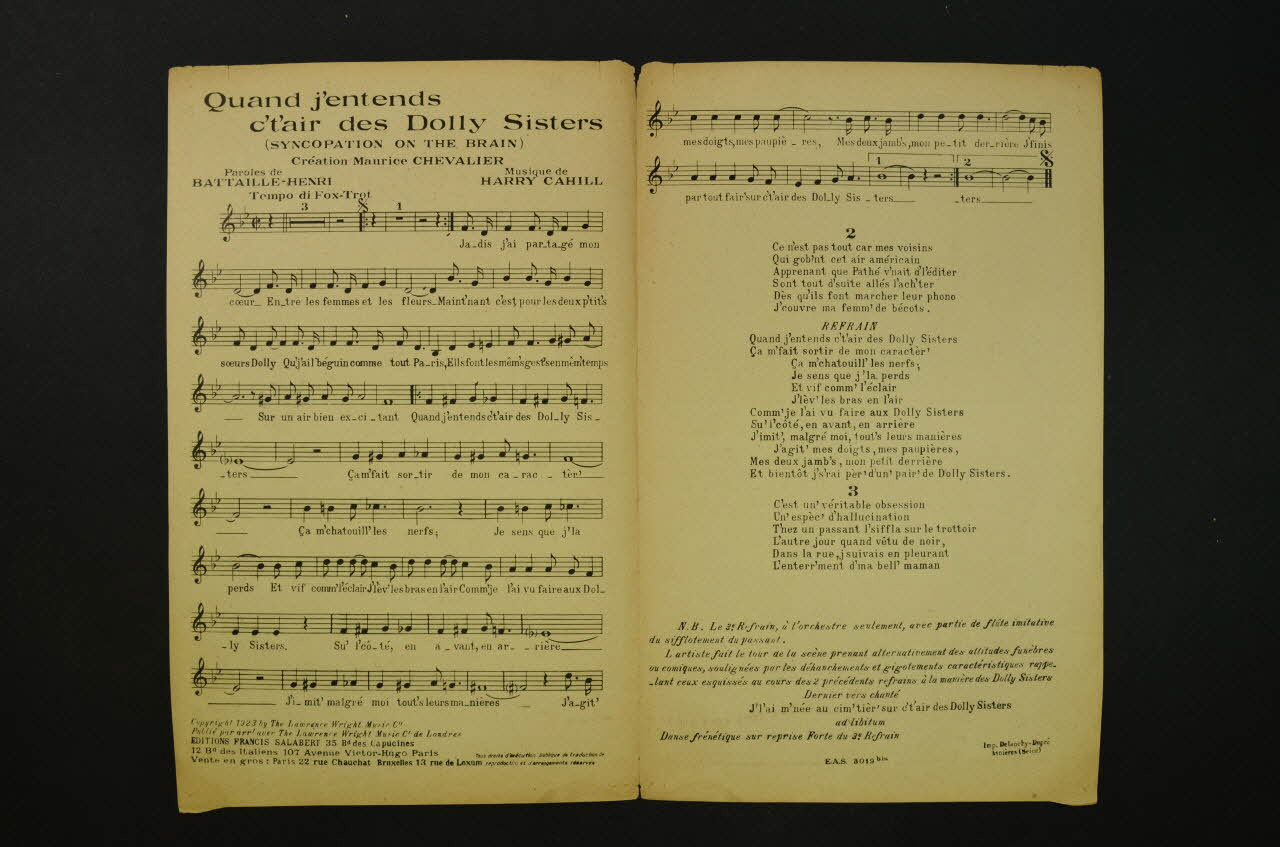 Quand j'entends
c't'air des Dolly Sisters
(SYNCOPATION ON THE BRAIN)
Création Maurice CHEVALIER
Paroles de
BATTAILLE-HENRI
Musique de
HARRY CAHILL
Tempo di Fox-Trot
3
1
Ja_dis j'ai par_ta_gé mon
cœur_ En_tre les femmes et les fleurs_ Maint'nant c'est pour les deux p'tit's
sœurs Dolly Qu'j'ai l'béguin comme tout Pa_ris, Ells font les mêm's gest's en mêm' temps
Sur un air bien ex_ci_tant Quand j'entends c't'air des Dol_ly Sis_
_ters Ça m'fait sor_tir de mon ca_rac_tèr'
Ça m'chatouill' les nerfs; Je sens que j'la
perds Et vif comm' l'éclair J'lèv' les bras en l'air Comm' je l'ai vu faire aux Dol_
_ly Sisters. Su' l'cô_té, en a_vant, en ar_rière
J'i_mit' malgré moi tout's leurs ma_nières J'a_git'
Copyright 1923 by The Lawrence Wright Music Co
Publié par arrt avec The Lawrence Wright Music Co de Londres
EDITIONS FRANCIS SALABERT 35 Bd des Capucines
12 Bd des Italiens 107 Avenue Victor-Hugo Paris
Vente en gros: Paris 22 rue Chauchat Bruxelles 13 rue de Loxum
Tous droits d'exécution publique de traduction de
reproduction et d'arrangements réservés
mes doigts, mes paupiè_res, Mes deux jamb's, mon pe_tit der_rière J'finis
1
2
par tout fair' sur c't'air des Dol_ly Sis_ters _ters
2
Ce n'est pas tout car mes voisins
Qui gob'nt cet air américain
Apprenant que Pathé v'nait d'l'éditer
Sont tout d'suite allés l'ach'ter
Dès qu'ils font marcher leur phono
J'couvre ma femm' de bécots.
REFRAIN
Quand j'entends c't'air des Dolly Sisters
Ça m'fait sortir de mon caractèr'
Ça m'chatouill' les nerfs;
Je sens que j'la perds
Et vif comm' l'éclair
J'lèv' les bras en l'air
Comm' je l'ai vu faire aux Dolly Sisters
Su' l'côté, en avant, en arrière
J'imit', malgré moi, tout's leurs manières
J'agit' mes doigts, mes paupières,
Mes deux jamb's, mon petit derrière
Et bientôt j's'rai pèr' d'un' pair' de Dolly Sisters.
3
C'est un' véritable obsession
Un' espèc' d'hallucination
T'nez un passant l'siffla sur le trottoir
L'autre jour quand vêtu de noir,
Dans la rue, j'suivais en pleurant
L'enterr'ment d'ma bell' maman
N.B. Le 3e Refrain, à l'orchestre seulement, avec partie de flûte imitative
du sifflotement du passant.
L'artiste fait le tour de la scène prenant alternativement des attitudes funèbres
ou comiques, soulignées par les déhanchements et gigotements caractéristiques rappe_
_lant ceux esquissés au cours des 2 précédents refrains à la manière des Dolly Sisters
Dernier vers chanté
J'l'ai m'née au cim'tièr' sur c't'air des Dolly Sisters
ad libitum
Danse frénétique sur reprise Forte du 3e Refrain
Imp. Delanchy-Dupré
Asnières (Seine)
E.A.S. 3019 bis